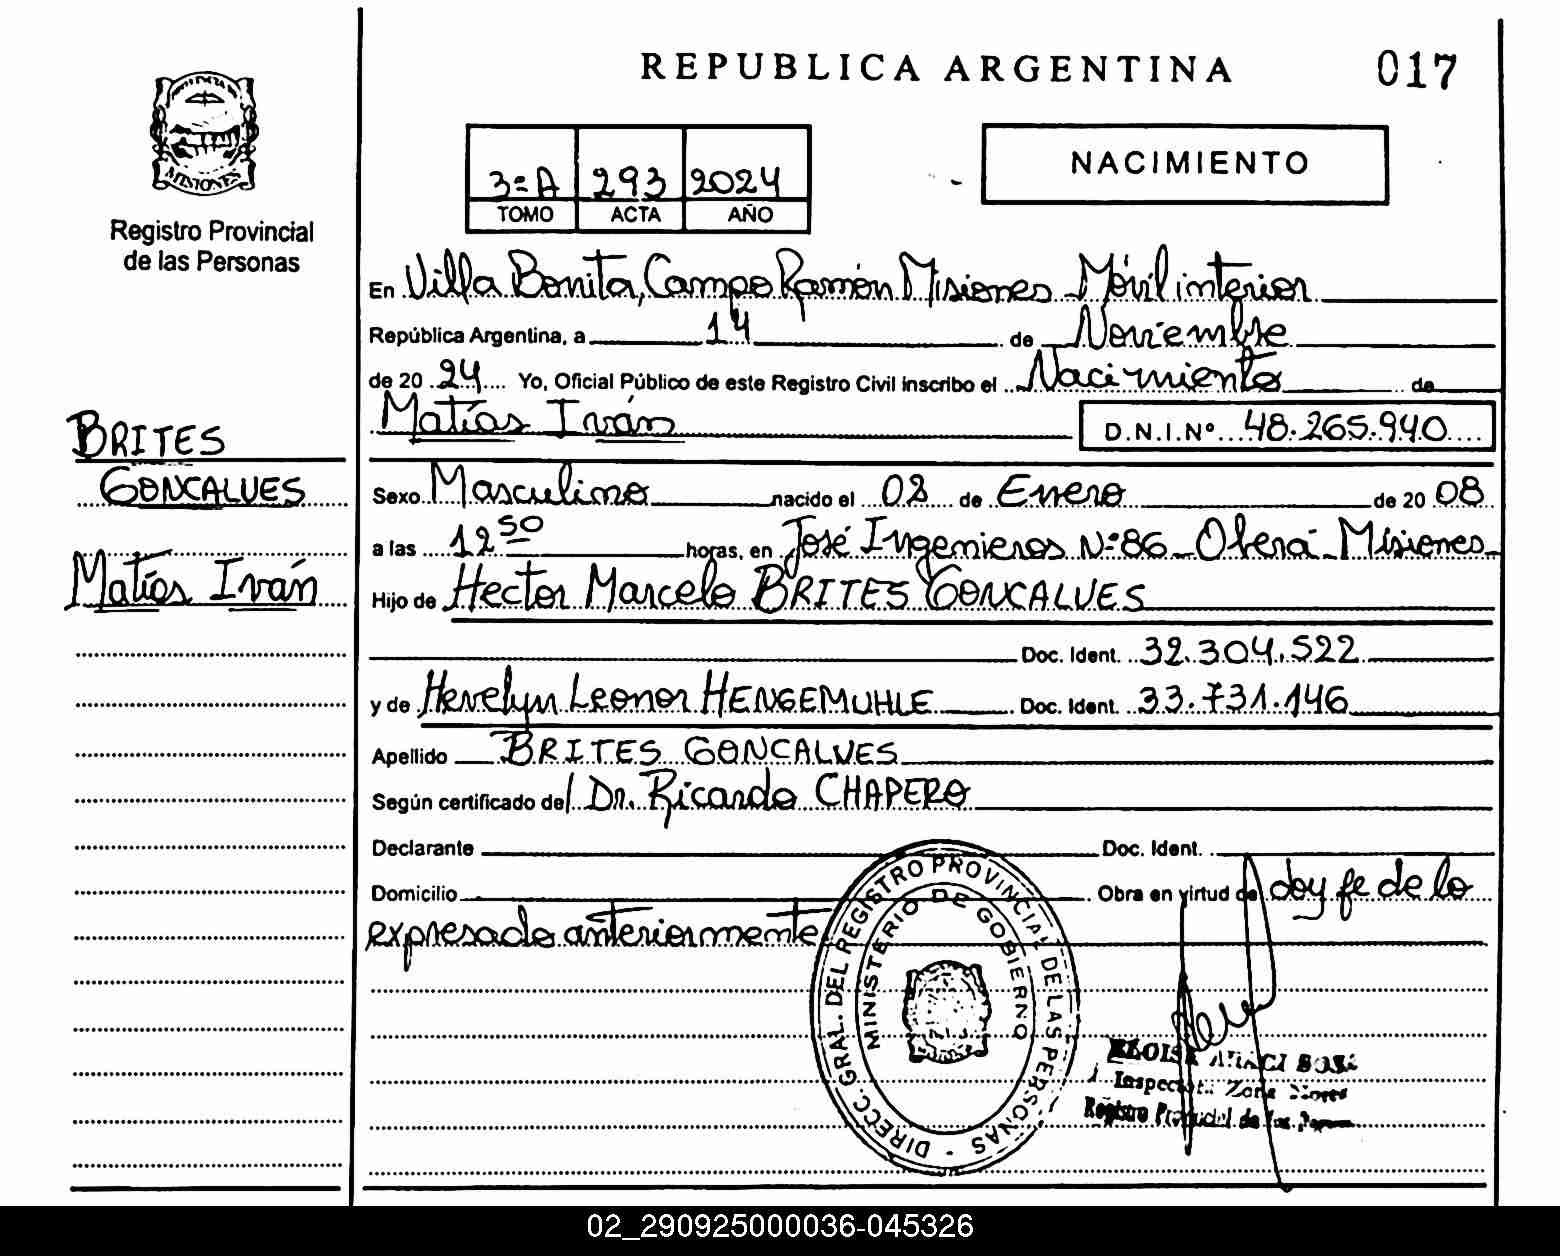 REPUBLICA ARGENTINA
017
MISIONES
Registro Provincial
de las Personas
3=A 293 2024
TOMO ACTA AÑO
NACIMIENTO
En Villa Bonita, Campo Ramón Misiones - Móvil interior
República Argentina, a 14 de Noviembre
de 20 24 Yo, Oficial Público de este Registro Civil inscribo el Nacimiento de
Matías Iván D.N.I.Nº 48.265.940
BRITES
GONCALVES
Matías Iván
Sexo Masculino nacido el 08 de Enero de 20 08
a las 12 50 horas, en José Ingenieros Nº86 - Oberá - Misiones -
Hijo de Hector Marcelo BRITES GONCALVES
Doc. Ident. 32.304.522
y de Hevelyn Leonor HENGEMUHLE Doc. Ident. 33.731.146
Apellido BRITES GONCALVES
Según certificado del Dr. Ricardo CHAPERO
Declarante Doc. Ident.
Domicilio Obra en virtud de doy fe de lo
expresado anteriormente
DIRECC. GRAL. DEL REGISTRO PROVINCIAL DE LAS PERSONAS -
MINISTERIO DE GOBIERNO
Zona
Registro Provincial de las
02_290925000036-045326